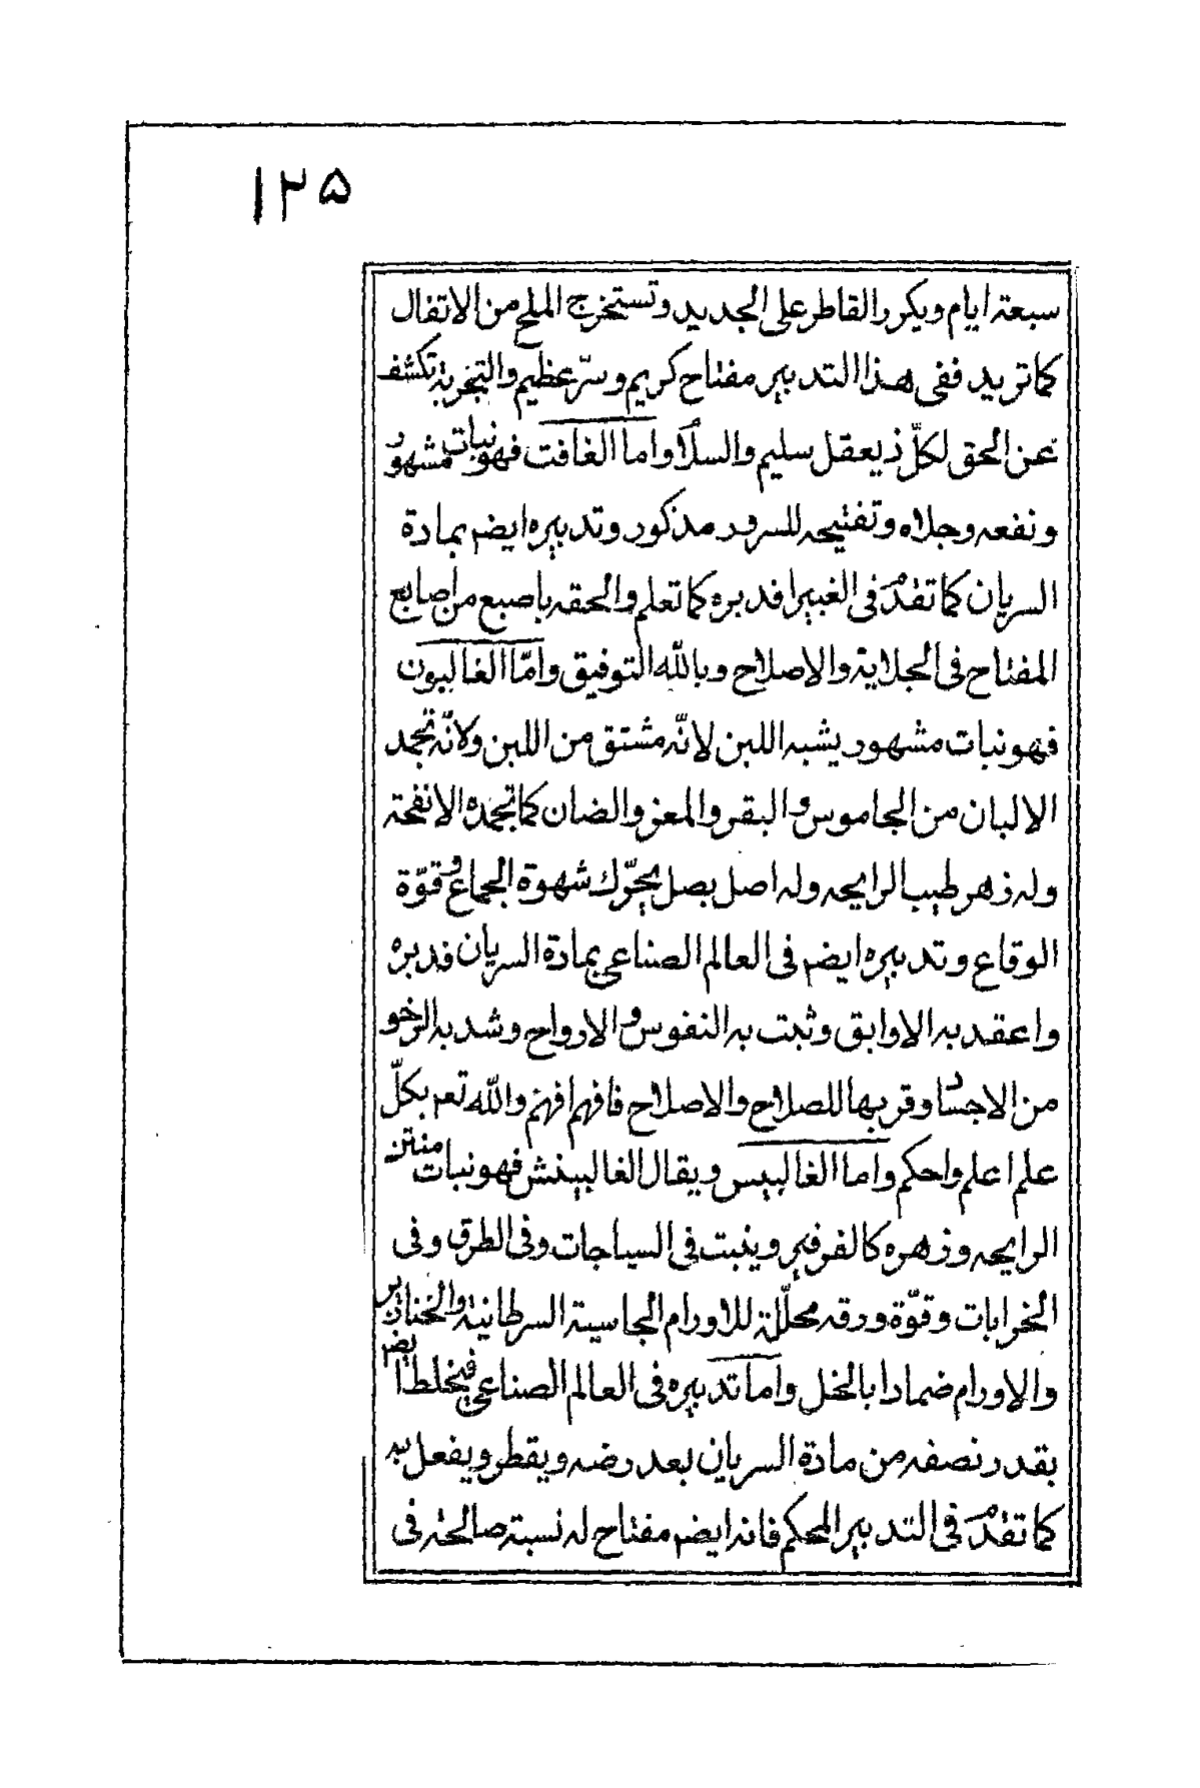 ١٢۵
سبعة ايام ويكرر القاطر على الجديد وتستخرج الملح من الاتفال
كما تريد ففى هذا التدبير مفتاح كريم وسرّ عظيم والتجربة تكشف
عن الحق لكلّ ذيعقل سليم والسلام واما الغافت فهو نبات مشهور
ونفعه وجلاه وتفتيحه للسدد مذكور وتدبيره ايضم بمادة
السريان كما تقدم فى الغبيرا فدبره كما تعلم والحقه باصبع من اصابع
المفتاح فى الجلاية والاصلاح وبالله التوفيق وامّا الغاليون
فهو نبات مشهور يشبه اللبن لانّه مشتق من اللبن ولانّه تجمد
الالبان من الجاموس و البقر والمعز والضان كما تجمده الانفحة
وله زهر طيب الرايحه وله اصل بصل يحرّك شهوة الجماع وقوّة
الوقاع وتدبيره ايضم فى العالم الصناعى بمادة السريان فدبره
واعقد به الاوابق وثبت به النفوس و الارواح وشد به الرخو
من الاجساد وقربها للصلاح والاصلاح فافهم افهم والله تعم بكلّ
علم اعلم واحكم واما الغالبيس ويقال الغالبينش فهو نبات منتن
الرايحه وزهره كالفرفير وينبت فى السياجات وفى الطرق وفى
الخرابات وقوّة ورقه محلّلة للاورام الجاسية السرطانية والخنازير
والاورام ضمادا بالخل واما تدبيره فى العالم الصناعى فيخلط ايضم
بقدر نصفه من مادة السريان بعد رضه ويقطر ويفعل به
كما تقدم فى التدبير المحكم فانه ايضم مفتاح له نسبة صالحة فى